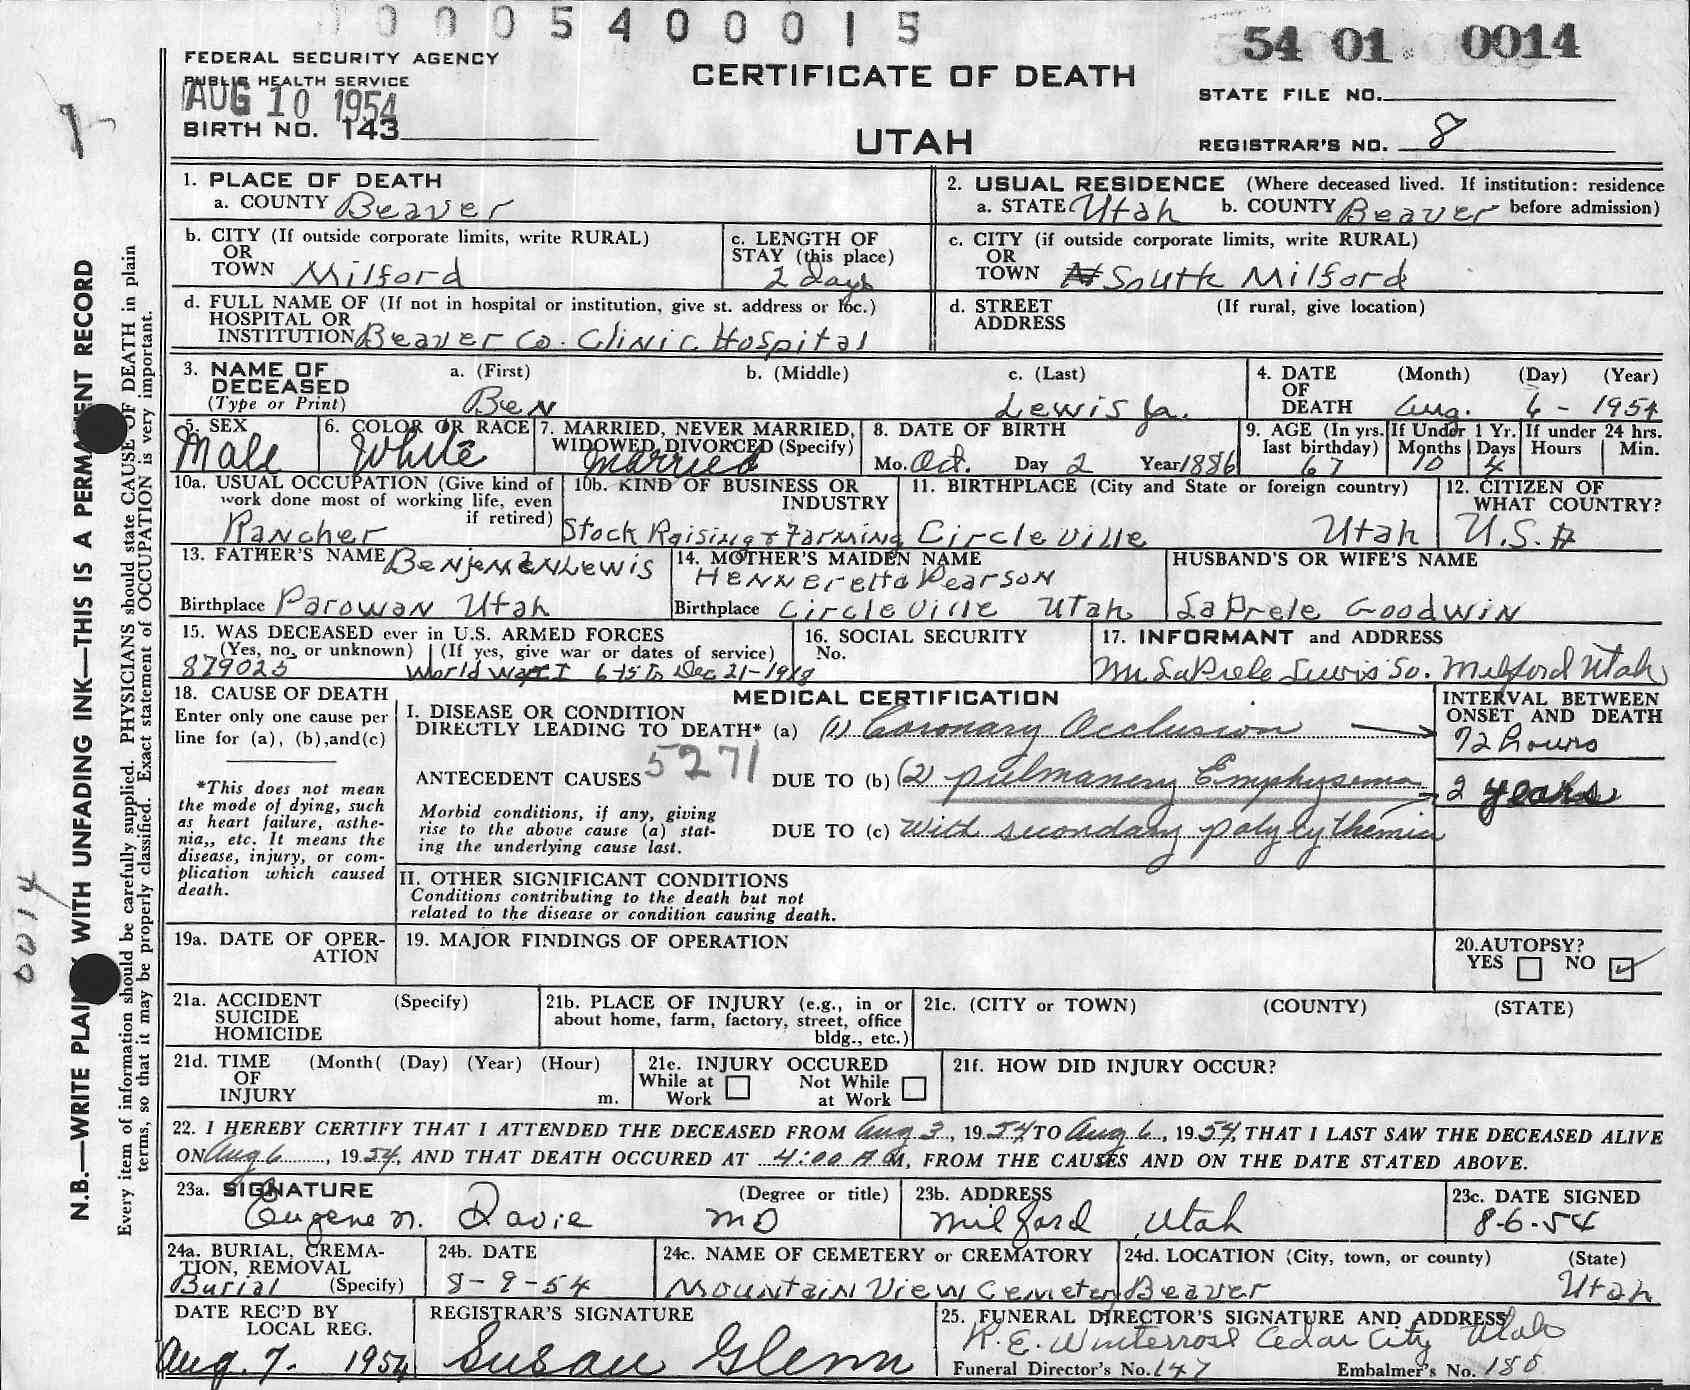 0 0 0 5 4 0 0 0 1 5
54 01 0014
FEDERAL SECURITY AGENCY
PUBLIC HEALTH SERVICE
AUG 10 1954
BIRTH NO. 143
CERTIFICATE OF DEATH
UTAH
STATE FILE NO.
REGISTRAR'S NO. 8
1. PLACE OF DEATH
a. COUNTY Beaver
2. USUAL RESIDENCE (Where deceased lived. If institution: residence
a. STATE Utah b. COUNTY Beaver before admission)
b. CITY (If outside corporate limits, write RURAL)
OR
TOWN Milford
c. LENGTH OF
STAY (this place)
2 days
c. CITY (if outside corporate limits, write RURAL)
OR
TOWN South Milford
d. FULL NAME OF (If not in hospital or institution, give st. address or loc.)
HOSPITAL OR
INSTITUTION Beaver Co. Clinic Hospital
d. STREET (If rural, give location)
ADDRESS
3. NAME OF a. (First) b. (Middle) c. (Last)
DECEASED
(Type or Print) Ben Lewis Ja.
4. DATE (Month) (Day) (Year)
OF
DEATH Aug. 6 - 1954
5. SEX
Male
6. COLOR OR RACE
White
7. MARRIED, NEVER MARRIED,
WIDOWED, DIVORCED (Specify)
Married
8. DATE OF BIRTH
Mo. Oct. Day 2 Year 1886
9. AGE (In yrs.
last birthday)
67
If Under 1 Yr.
Months Days
10 4
If under 24 hrs.
Hours Min.
10a. USUAL OCCUPATION (Give kind of
work done most of working life, even
if retired)
Rancher
10b. KIND OF BUSINESS OR
INDUSTRY
Stock Raising & Farming
11. BIRTHPLACE (City and State or foreign country)
Circleville Utah
12. CITIZEN OF
WHAT COUNTRY?
U.S.A
13. FATHER'S NAME Benjemen Lewis
Birthplace Parowan Utah
14. MOTHER'S MAIDEN NAME
Henneretta Pearson
Birthplace Circleville Utah
HUSBAND'S OR WIFE'S NAME
LaPrele Goodwin
15. WAS DECEASED ever in U.S. ARMED FORCES
(Yes, no, or unknown) (If yes, give war or dates of service)
879025 World War I 6-15 To Dec 21-1918
16. SOCIAL SECURITY
No.
17. INFORMANT and ADDRESS
LaPrele Lewis So. Milford Utah
18. CAUSE OF DEATH
Enter only one cause per
line for (a), (b), and (c)
*This does not mean
the mode of dying, such
as heart failure, asthe-
nia,, etc. It means the
disease, injury, or com-
plication which caused
death.
MEDICAL CERTIFICATION
I. DISEASE OR CONDITION
DIRECTLY LEADING TO DEATH* (a) (1) Coronary Occlusion
ANTECEDENT CAUSES 5271 DUE TO (b) (2) pulmanery Emphysema
Morbid conditions, if any, giving
rise to the above cause (a) stat-
ing the underlying cause last.
DUE TO (c) With secondary polycythemia
INTERVAL BETWEEN
ONSET AND DEATH
72 hours
2 years
II. OTHER SIGNIFICANT CONDITIONS
Conditions contributing to the death but not
related to the disease or condition causing death.
19a. DATE OF OPER-
ATION
19. MAJOR FINDINGS OF OPERATION
20. AUTOPSY?
YES NO ✓
21a. ACCIDENT (Specify)
SUICIDE
HOMICIDE
21b. PLACE OF INJURY (e.g., in or
about home, farm, factory, street, office
bldg., etc.)
21c. (CITY or TOWN) (COUNTY) (STATE)
21d. TIME (Month( (Day) (Year) (Hour)
OF
INJURY m.
21e. INJURY OCCURED
While at Not While
Work at Work
21f. HOW DID INJURY OCCUR?
22. I HEREBY CERTIFY THAT I ATTENDED THE DECEASED FROM Aug 3, 19 54 TO Aug 6, 19 54, THAT I LAST SAW THE DECEASED ALIVE
ON Aug 6, 19 54, AND THAT DEATH OCCURED AT 4:00 A M, FROM THE CAUSES AND ON THE DATE STATED ABOVE.
23a. SIGNATURE (Degree or title)
Eugene N. Davie MD
23b. ADDRESS
Milford, Utah
23c. DATE SIGNED
8-6-54
24a. BURIAL, CREMA-
TION, REMOVAL
Burial (Specify)
24b. DATE
8-9-54
24c. NAME OF CEMETERY or CREMATORY
Mountain View Cemetery
24d. LOCATION (City, town, or county) (State)
Beaver Utah
DATE REC'D BY
LOCAL REG.
Aug. 7. 1954
REGISTRAR'S SIGNATURE
Susan Glenn
25. FUNERAL DIRECTOR'S SIGNATURE AND ADDRESS
R. E. Winterrose Cedar City Utah
Funeral Director's No. 147 Embalmer's No. 180
N.B.—WRITE PLAINLY WITH UNFADING INK—THIS IS A PERMANENT RECORD
Every item of information should be carefully supplied. PHYSICIANS should state CAUSE OF DEATH in plain
terms, so that it may be properly classified. Exact statement of OCCUPATION is very important.
0014